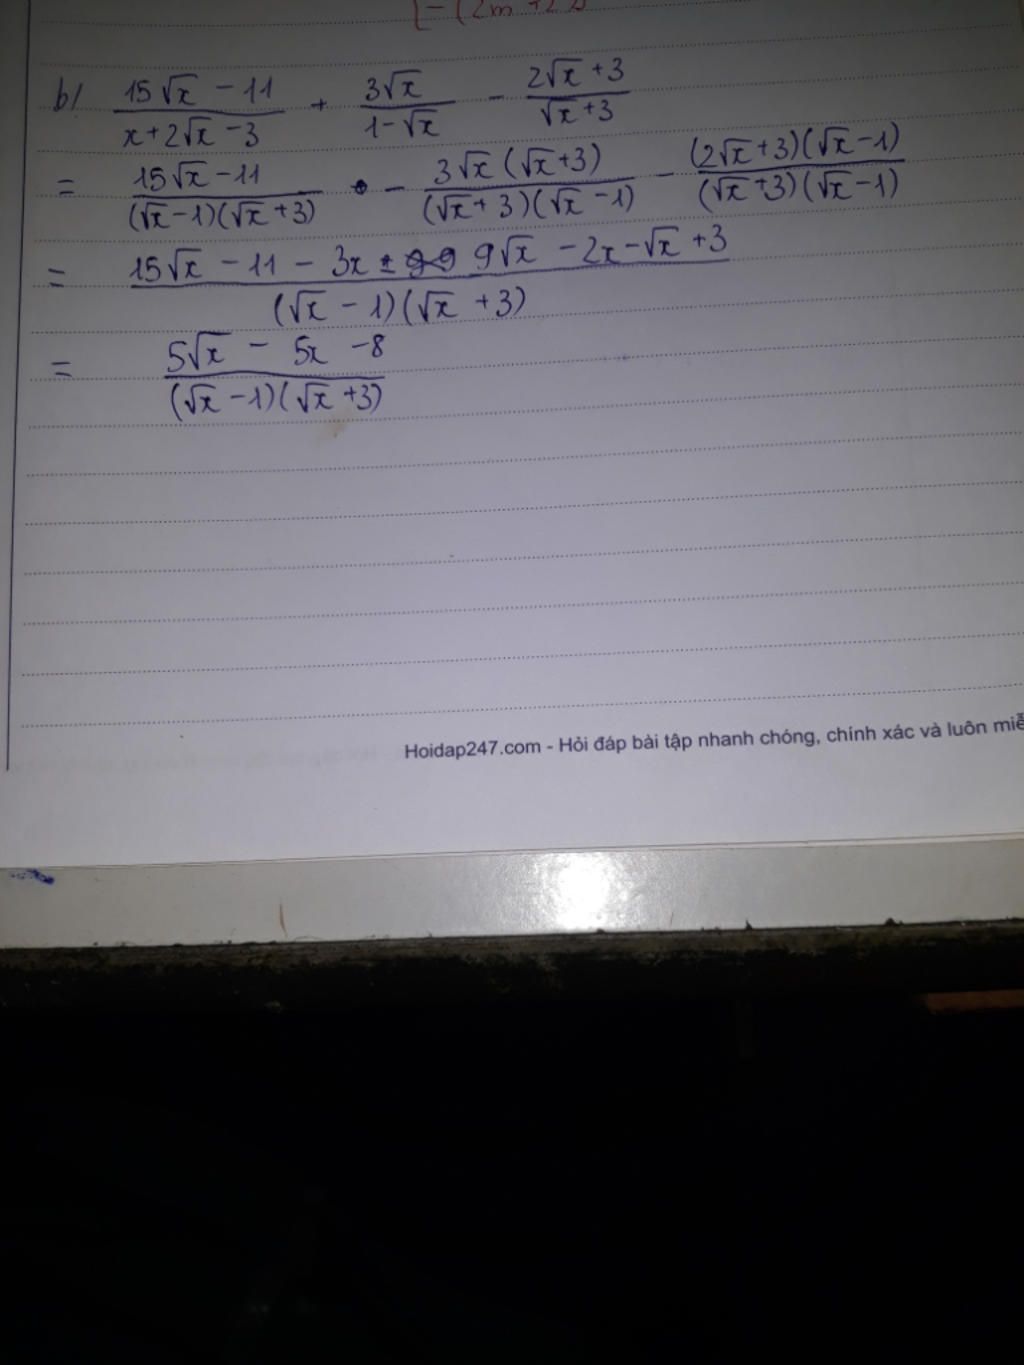 b/ \frac{15\sqrt{x} - 11}{x + 2\sqrt{x} - 3} + \frac{3\sqrt{x}}{1 - \sqrt{x}} - \frac{2\sqrt{x} + 3}{\sqrt{x} + 3}
= \frac{15\sqrt{x} - 11}{(\sqrt{x} - 1)(\sqrt{x} + 3)} - \frac{3\sqrt{x}(\sqrt{x} + 3)}{(\sqrt{x} + 3)(\sqrt{x} - 1)} - \frac{(2\sqrt{x} + 3)(\sqrt{x} - 1)}{(\sqrt{x} + 3)(\sqrt{x} - 1)}
= \frac{15\sqrt{x} - 11 - 3x - 9\sqrt{x} - 2x - \sqrt{x} + 3}{(\sqrt{x} - 1)(\sqrt{x} + 3)}
= \frac{5\sqrt{x} - 5x - 8}{(\sqrt{x} - 1)(\sqrt{x} + 3)}
Hoidap247.com - Hỏi đáp bài tập nhanh chóng, chính xác và luôn